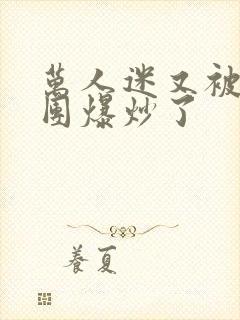 萬人迷又被
圍爆炒了
養夏